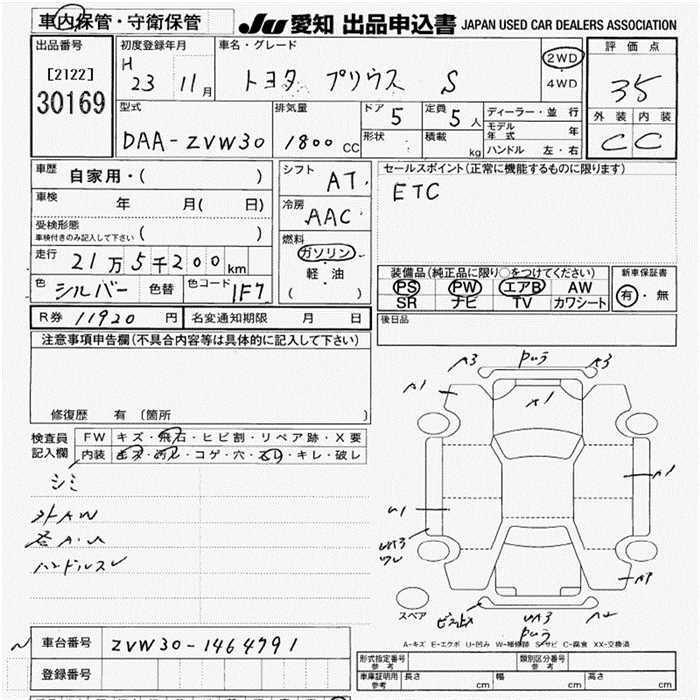 車内保管・守衛保管 JU 愛知 出品申込書 JAPAN USED CAR DEALERS ASSOCIATION
出品番号 初度登録年月 車名・グレード 2WD 評価点
[2122] H 23 11月 トヨタ プリウス S 4WD 35
30169
型式 排気量 ドア 5 定員 5人 ディーラー・並行 外装 内装
DAA-ZVW30 1800cc 形状 積載 kg モデル年式 年 C C
ハンドル 左・右
車歴 自家用・( ) シフト AT. セールスポイント(正常に機能するものに限ります)
車検 年 月( 日) 冷房 AAC ETC
受検形態
車検付きのみ記入して下さい ( )
燃料 ガソリン
走行 21万5千200km 軽・油 装備品(純正品に限り○をつけてください) 新車保証書
( ) PS PW エアB AW 有・無
色 シルバー 色替 色コード 1F7 SR ナビ TV カワシート
R券 11920円 名変通知期限 月 日 後日品
注意事項申告欄(不具合内容等は具体的に記入して下さい)
修復歴 有 〔箇所
A3 A3
A1 A1
検査員 FW キズ・飛石・ヒビ割・リペア跡・X要
記入欄 内装 キズ・汚レ・コゲ・穴・スレ・キレ・破レ
シミ
A1
外AW
U1
ハンドルスレ
スペア
A2
A-キズ E-エクボ U-凹み W-補修跡 S-サビ C-腐食 XX-交換済
車台番号 ZVW30-1464791
登録番号
形式指定番号 参考 類別区分番号 参考
車庫証明用 参考 長さ cm 幅 cm 高さ cm